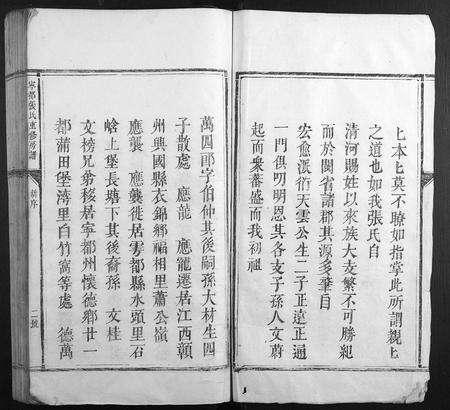 上本上莫不瞭如指掌此所謂親上
之道也如我張氏自
清河賜姓以來族大支繁不可勝紀
而於閩省諸郡其源多肇自
宏愈派衍天雲公生二子正遠正通
一門俱叨明恩其各支子孫人文蔚
起而衆蕃盛而我初祖
萬四郎字伯仲其後嗣孫大材生四
子散處 應龍 應寵遷居江西贛
州興國縣衣錦鄉福相里蕭公嶺
應襲 應龔徙居雩都縣水頭里石
㟏上堡長塘下其後裔孫 文桂
文榜兄弟移居寧都州懷德鄉廿一
都蒲田堡湾里白竹窩等處 德萬
寧都張氏重修房譜
新序
二號